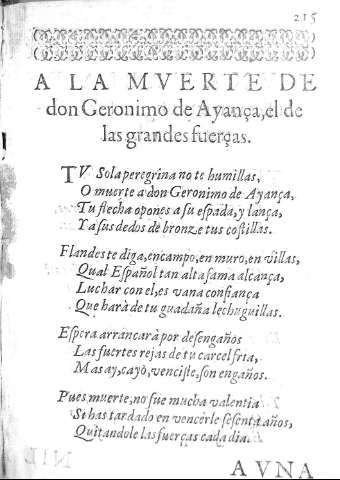 215
A LA MVERTE DE
don Geronimo de Ayança, el de
las grandes fuerças.
TV Sola peregrina no te humillas,
O muerte a don Geronimo de Ayança,
Tu flecha opones a su espada, y lança,
Y a sus dedos de bronze tus costillas.
Flandes te diga, en campo, en muro, en villas,
Qual Español tan alta fama alcança,
Luchar con el, es vana confiança
Que harà de tu guadaña lechuguillas.
Espera arrancarà por desengaños
Las fuertes rejas de tu carcel fria,
Mas ay, cayò, venciste, son engaños.
Pues, muerte, no fue mucha valentia
Si has tardado en vencerle sesenta años,
Quitandole las fuerças cada dia.
A VNA